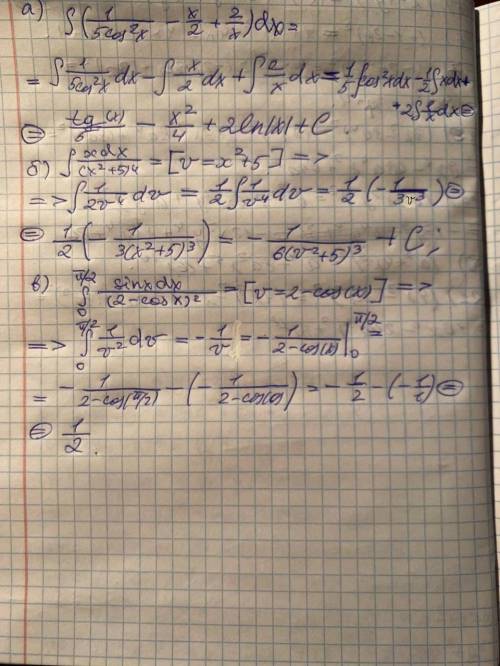 а) ∫(1/(5cos²x) - x/2 + 2/x)dx =
= ∫1/(5cos²x) dx - ∫x/2 dx + ∫2/x dx = 1/5 ∫cos²xdx - 1/2 ∫xdx +
+ 2∫1/x dx =
= tg(x)/5 - x²/4 + 2ln|x| + C.
б) ∫xdx/(x²+5)4 = [v = x²+5] =>
=> ∫1/(2v⁴) dv = 1/2 ∫1/v⁴ dv = 1/2 (-1/(3v³)) =
= 1/2 (-1/(3(x²+5)³)) = -1/(6(v²+5)³) + C;
в) ∫₀^(π/2) sinxdx/(2-cosx)² = [v = 2-cos(x)] =>
=> ∫₀^(π/2) 1/v² dv = -1/v = -1/(2-cos(x)) |₀^(π/2) =
= -1/(2-cos(π/2)) - (-1/(2-cos(0))) = -1/2 - (-1/1) =
= 1/2.